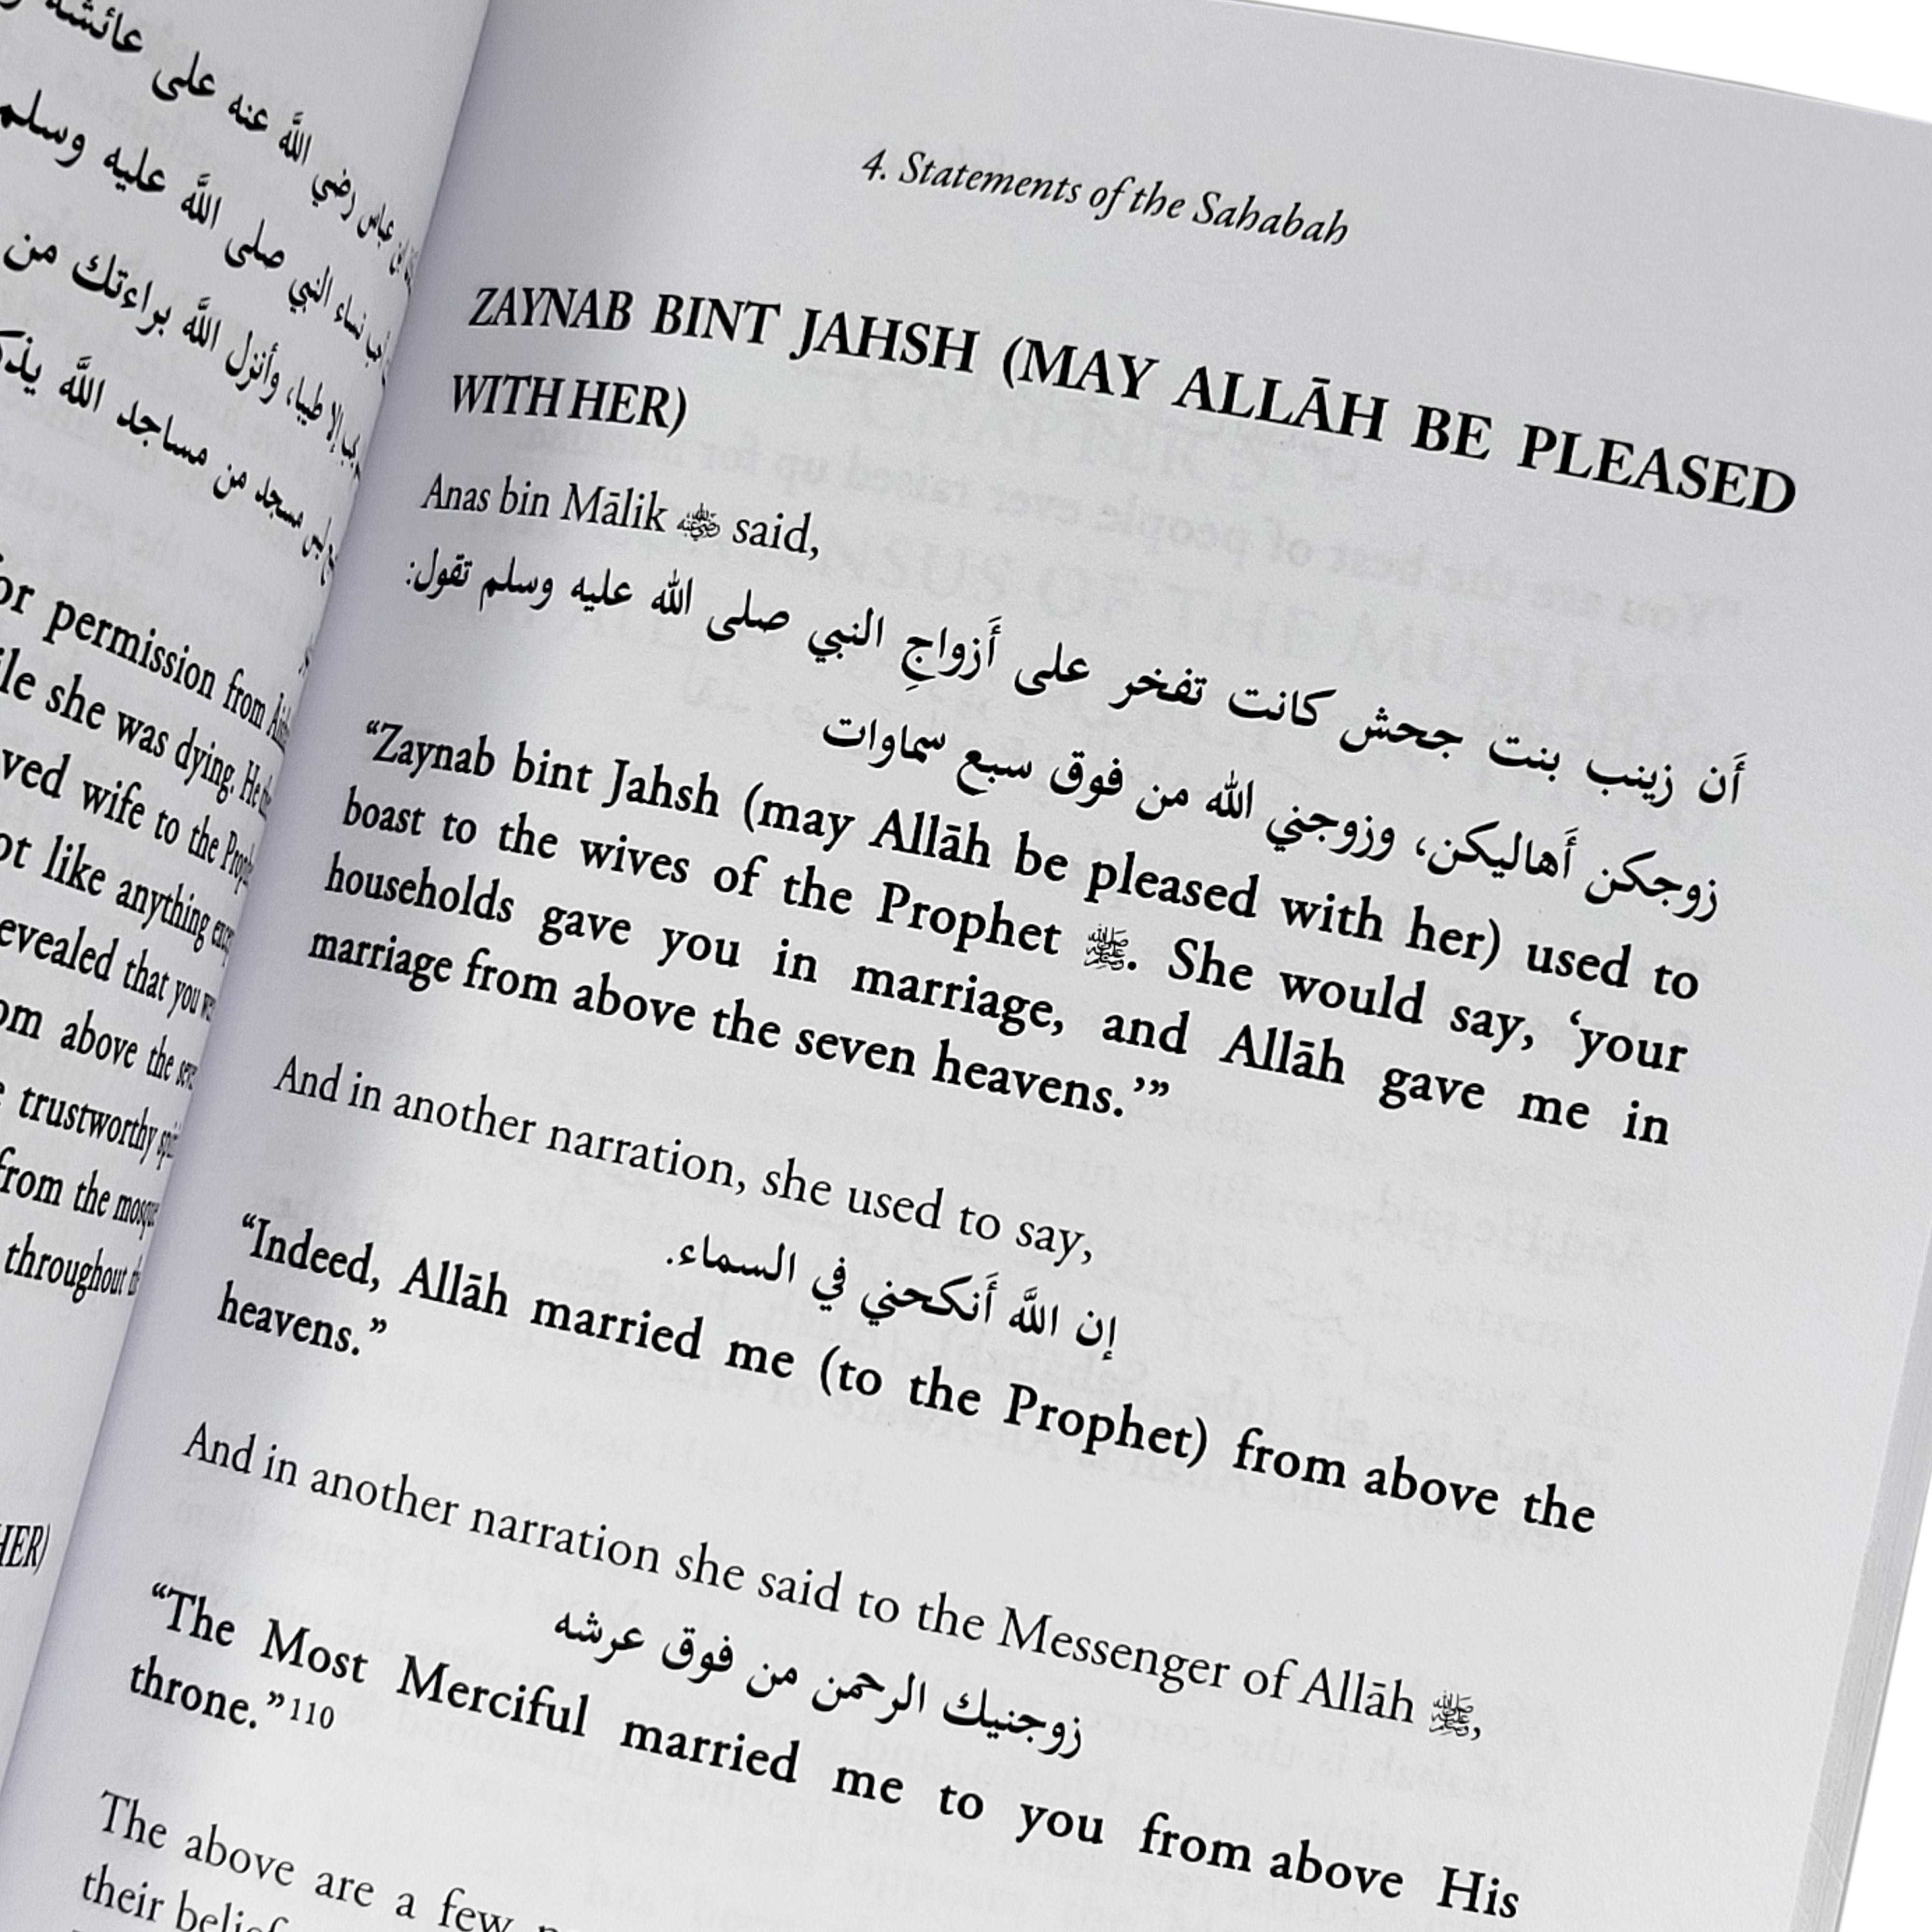 عنه على عائشة
رضي الله
صلى الله عليه وسلم
وأنزل الله براءتك من
مسجد من مساجد الله
or permission from
le she was dying. He
ved wife to the
ot like anything
evealed that you
om above the
trustworthy
from the
throughout
HER)
4. Statements of the Sahabah
ZAYNAB BINT JAHSH (MAY ALLĀH BE PLEASED
WITH HER)
Anas bin Mālik رضي الله عنه said,
أَن زينب بنت جحش كانت تفخر على أَزواجِ النبي صلى الله عليه وسلم تقول:
زوجكن أَهاليكن، وزوجني الله من فوق سبع سماوات
“Zaynab bint Jahsh (may Allāh be pleased with her) used to
boast to the wives of the Prophet ﷺ. She would say, ‘your
households gave you in marriage, and Allāh gave me in
marriage from above the seven heavens.’”
And in another narration, she used to say,
إن اللَّه أَنكحني في السماء.
“Indeed, Allāh married me (to the Prophet) from above the
heavens.”
And in another narration she said to the Messenger of Allāh ﷺ,
زوجنيك الرحمن من فوق عرشه
“The Most Merciful married me to you from above His
throne.”110
The above are a few
their